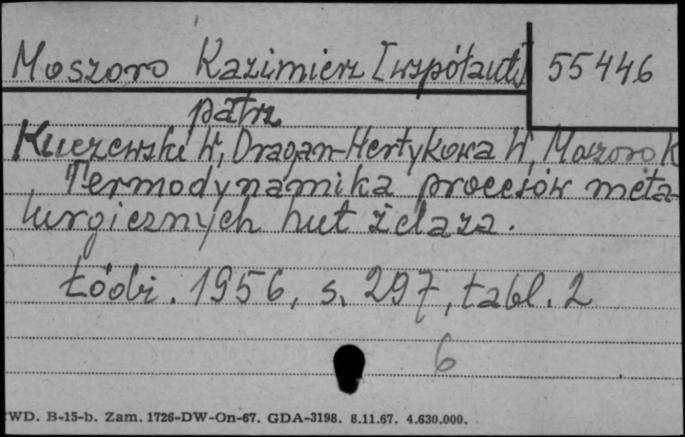 Moszoro Kazimierz [współaut.] 55446
patrz
Kuczewski W, Dragan-Hertykowa W, Moszoro K
Termodynamika procesów meta-
lurgicznych hut żelaza.
Łódź. 1956, s. 297, tabl. 2
6
WD. B-15-b. Zam. 1726-DW-On-67. GDA-3198. 8.11.67. 4.630.000.